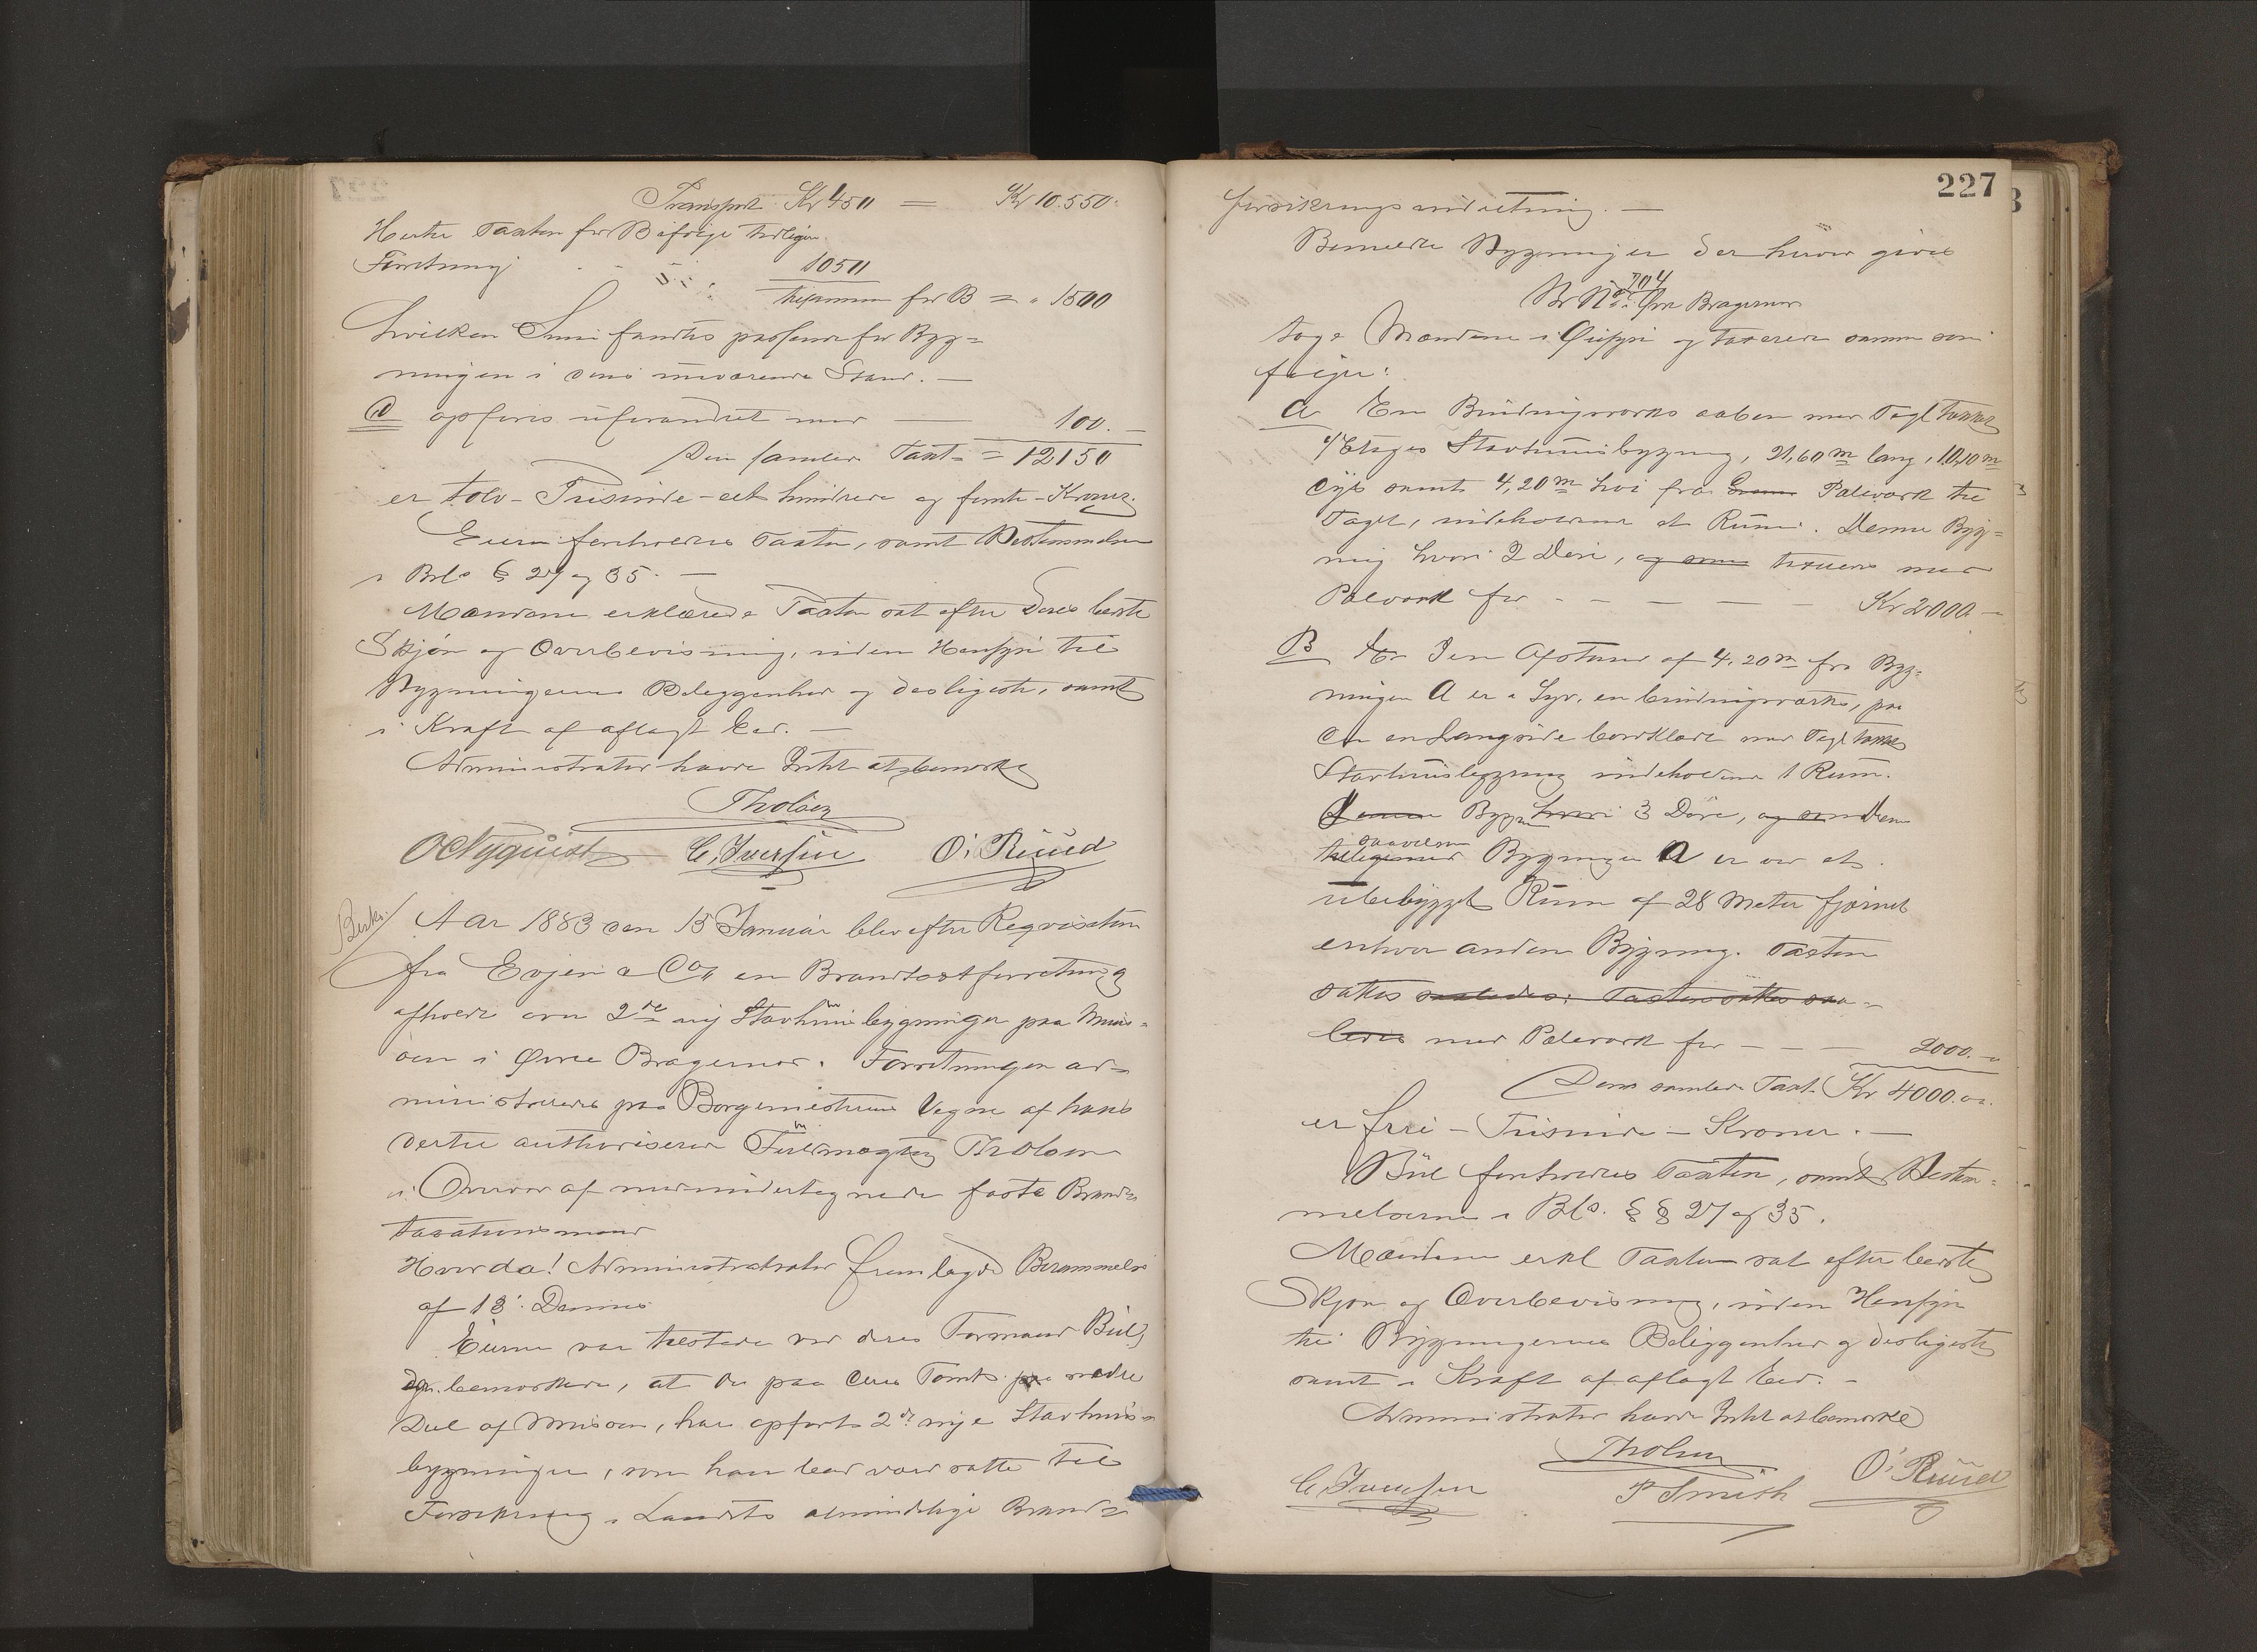 Transport Kr 450 = Kr 10.550
Hertil Taxten for B ifølge tidligere
Forretning 1050
tilsammen for B = " 1500
hvilken Sum fandtes passende for Byg=
ningen i dens nuværende Stand. —
D opføres uforandret med — 100. —
Den samlede Taxt = 12150
er tolv-Tusinde-et hundrede og femti-Kroner.
Eieren forholdtes Taxten, samt Bestemmelserne
i Brl. § 27 og 35. —
Mændene erklærede Taxten sat efter deres bedste
Skjøn og Overbevisning, uden Hensyn til
Bygningernes Beliggenhed og desligeste, samt
i Kraft af aflagt Eed. —
Administrator havde Intet at bemærke
Tholsen
O Nyquist C. Iversen O. Ruud
Besk.
Aar 1883 den 15 Januar blev efter Reqvisition
fra Evjen & Co en Brandtaxtforretning
afholdt over 2de ny Stavhuusbygninger paa Muus=
øen i Øvre Bragernes. Forretningen ad=
ministreredes paa Borgemesterens Vegne af hans
dertil authoriserede Fuldmægtig Tholsen
i Overvær af medundertegnede faste Brand=
taxationsmænd
Hvorda! Administrator fremlagde Berammelse
af 13. Dennes
Eierne var tilstede ved deres Formand Büll,
der bemærkede, at de paa deres Tomt paa nedre
Deel af Muusøen, har opført 2de nye Stavhuus=
bygninger, som han bad vær satte til
Forsikring i Landets almindelige Brand=
227
forsikringsindretning. —
Bemeldte Bygninger der herved gives
Br No. 704 Øvre Bragernes
toge Mændene i Øiesyn og taxerede samme som
følger:
A En Bindingsværks aaben med Tegl tækket
1 Etages Stavhuusbygning, 21,60 m lang, 10,10 m
dyb samt 4,20 m høi fra Pæleværk til
Taget, indeholdende et Rum. Denne Byg=
ning hvori 2 Døre, og som taxeres med
Pæleværk for — — — Kr 2000 —
B I en Afstand af 4,20 m fra Byg=
ningen A er i Syd, en bindingsværks, paa
den en Langside bordklædt med Tegl tækket
Stavhuusbygning indeholdende 1 Rum.
Denne Bygn hvori 3 Døre, og som denne
saavelsom Bygningen A er ved et
ubebygget Rum af 28 Meter fjernet
enhver anden Bygning. Taxten
sattes saaledes: Taxten sattes saa=
ledes med Pæleværk for — — — 2000. —
Dens samlede Taxt Kr 4000.00.
er fire-Tusinde-Kroner. —
Büll forholdtes Taxten, samt Bestem=
melserne i Bl. §§ 27 og 35.
Mændene erkl Taxten sat efter bedste
Skjøn og Overbevisning, uden Hensyn
til Bygningernes Beliggenhed og desligeste
samt i Kraft af aflagt Eed. —
Administrator havde Intet at bemærke
Tholsen
C. Iversen P Smith O. Ruud